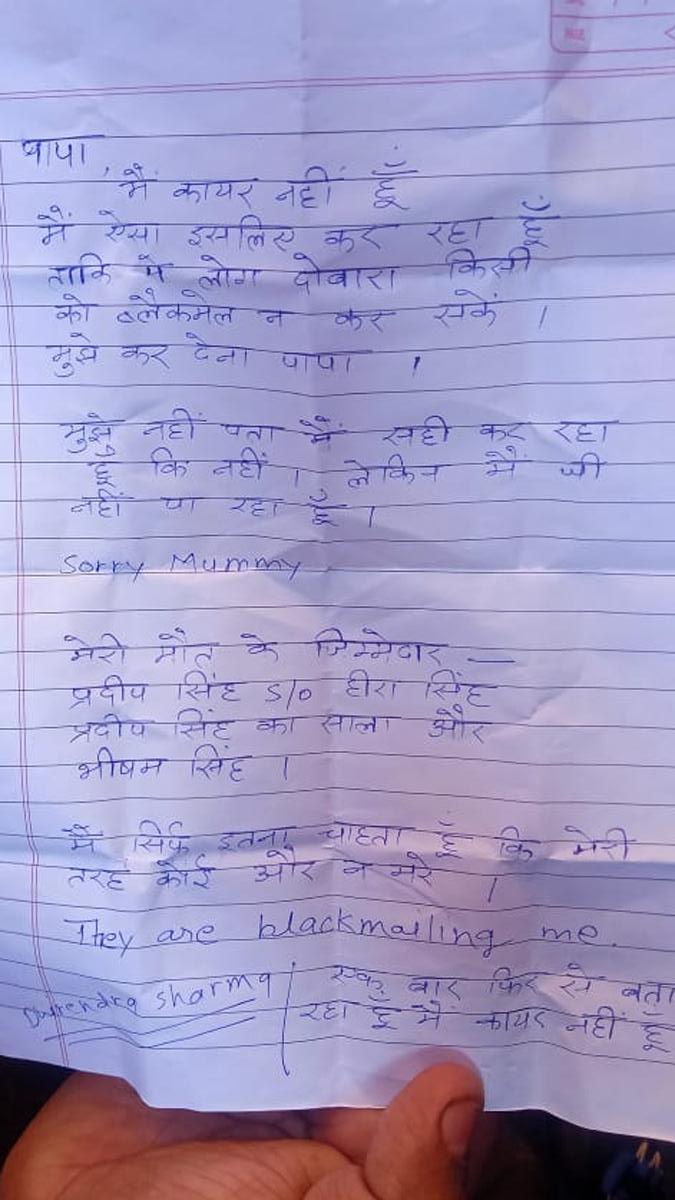 पापा,
मैं कायर नहीं हूँ
मैं ऐसा इसलिए कर रहा हूँ
ताकि ये लोग दोबारा किसी
को ब्लैकमेल न कर सकें ।
मुझे कर देना पापा ।
मुझे नहीं पता मैं सही कर रहा
हूँ कि नहीं । लेकिन मैं जी
नहीं पा रहा हूँ ।
Sorry Mummy
मेरी मौत के जिम्मेदार —
प्रदीप सिंह S/o हीरा सिंह
प्रदीप सिंह का साला और
भीषम सिंह ।
मैं सिर्फ इतना चाहता हूँ कि मेरी
तरह कोई और न मरे ।
They are blackmailing me.
Sharma
एक बार फिर से बता
रहा हूँ मैं कायर नहीं हूँ